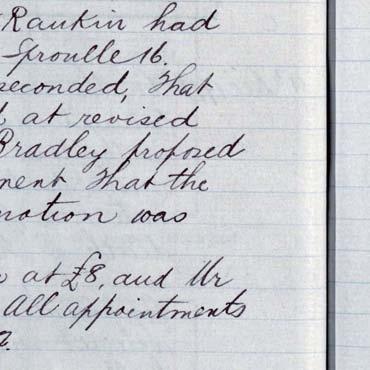 Rankin had
Sproulle 16.
seconded, That
at revised
Bradley proposed
ment That the
motion was
at £8, and Mr
All appointments